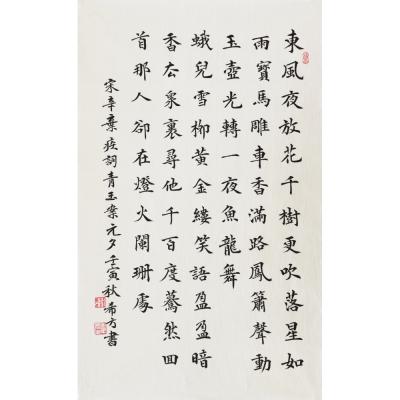 東風夜放花千樹更吹落星如
雨寶馬雕車香滿路鳳簫聲動
玉壺光轉一夜魚龍舞
蛾兒雪柳黃金縷笑語盈盈暗
香去衆裏尋他千百度驀然回
首那人卻在燈火闌珊處
宋辛棄疾詞青玉案元夕壬寅秋希方書